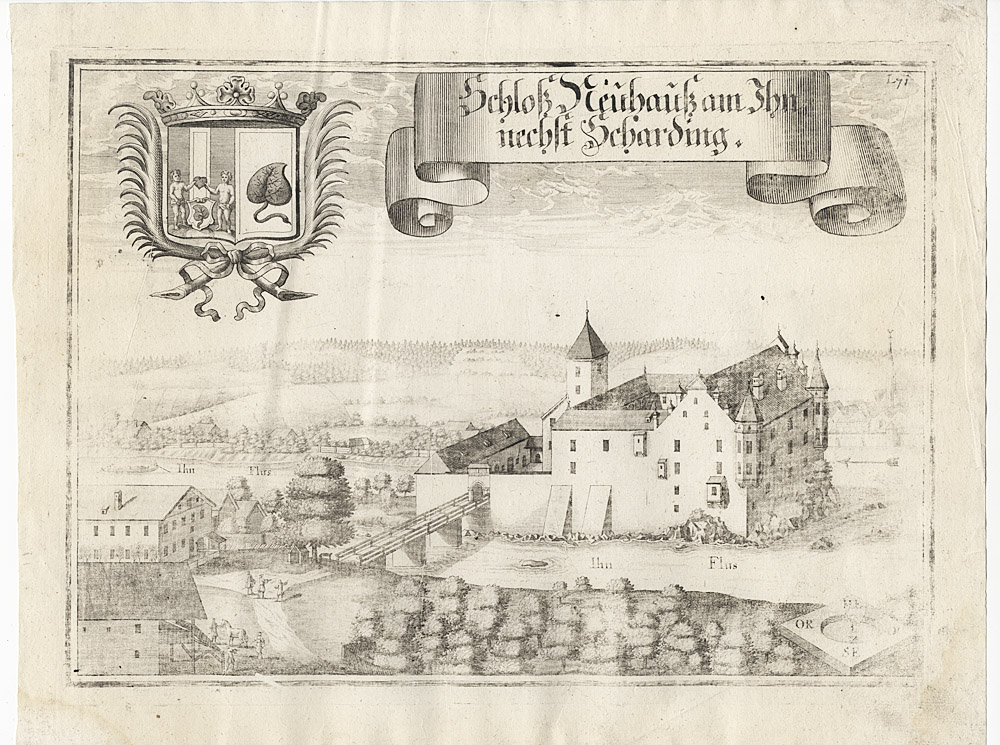 Schloß Neühauß am Ihn
nechst Scharding.
L71
Ihn Flus
Ihn Flus
ME
OR
SE